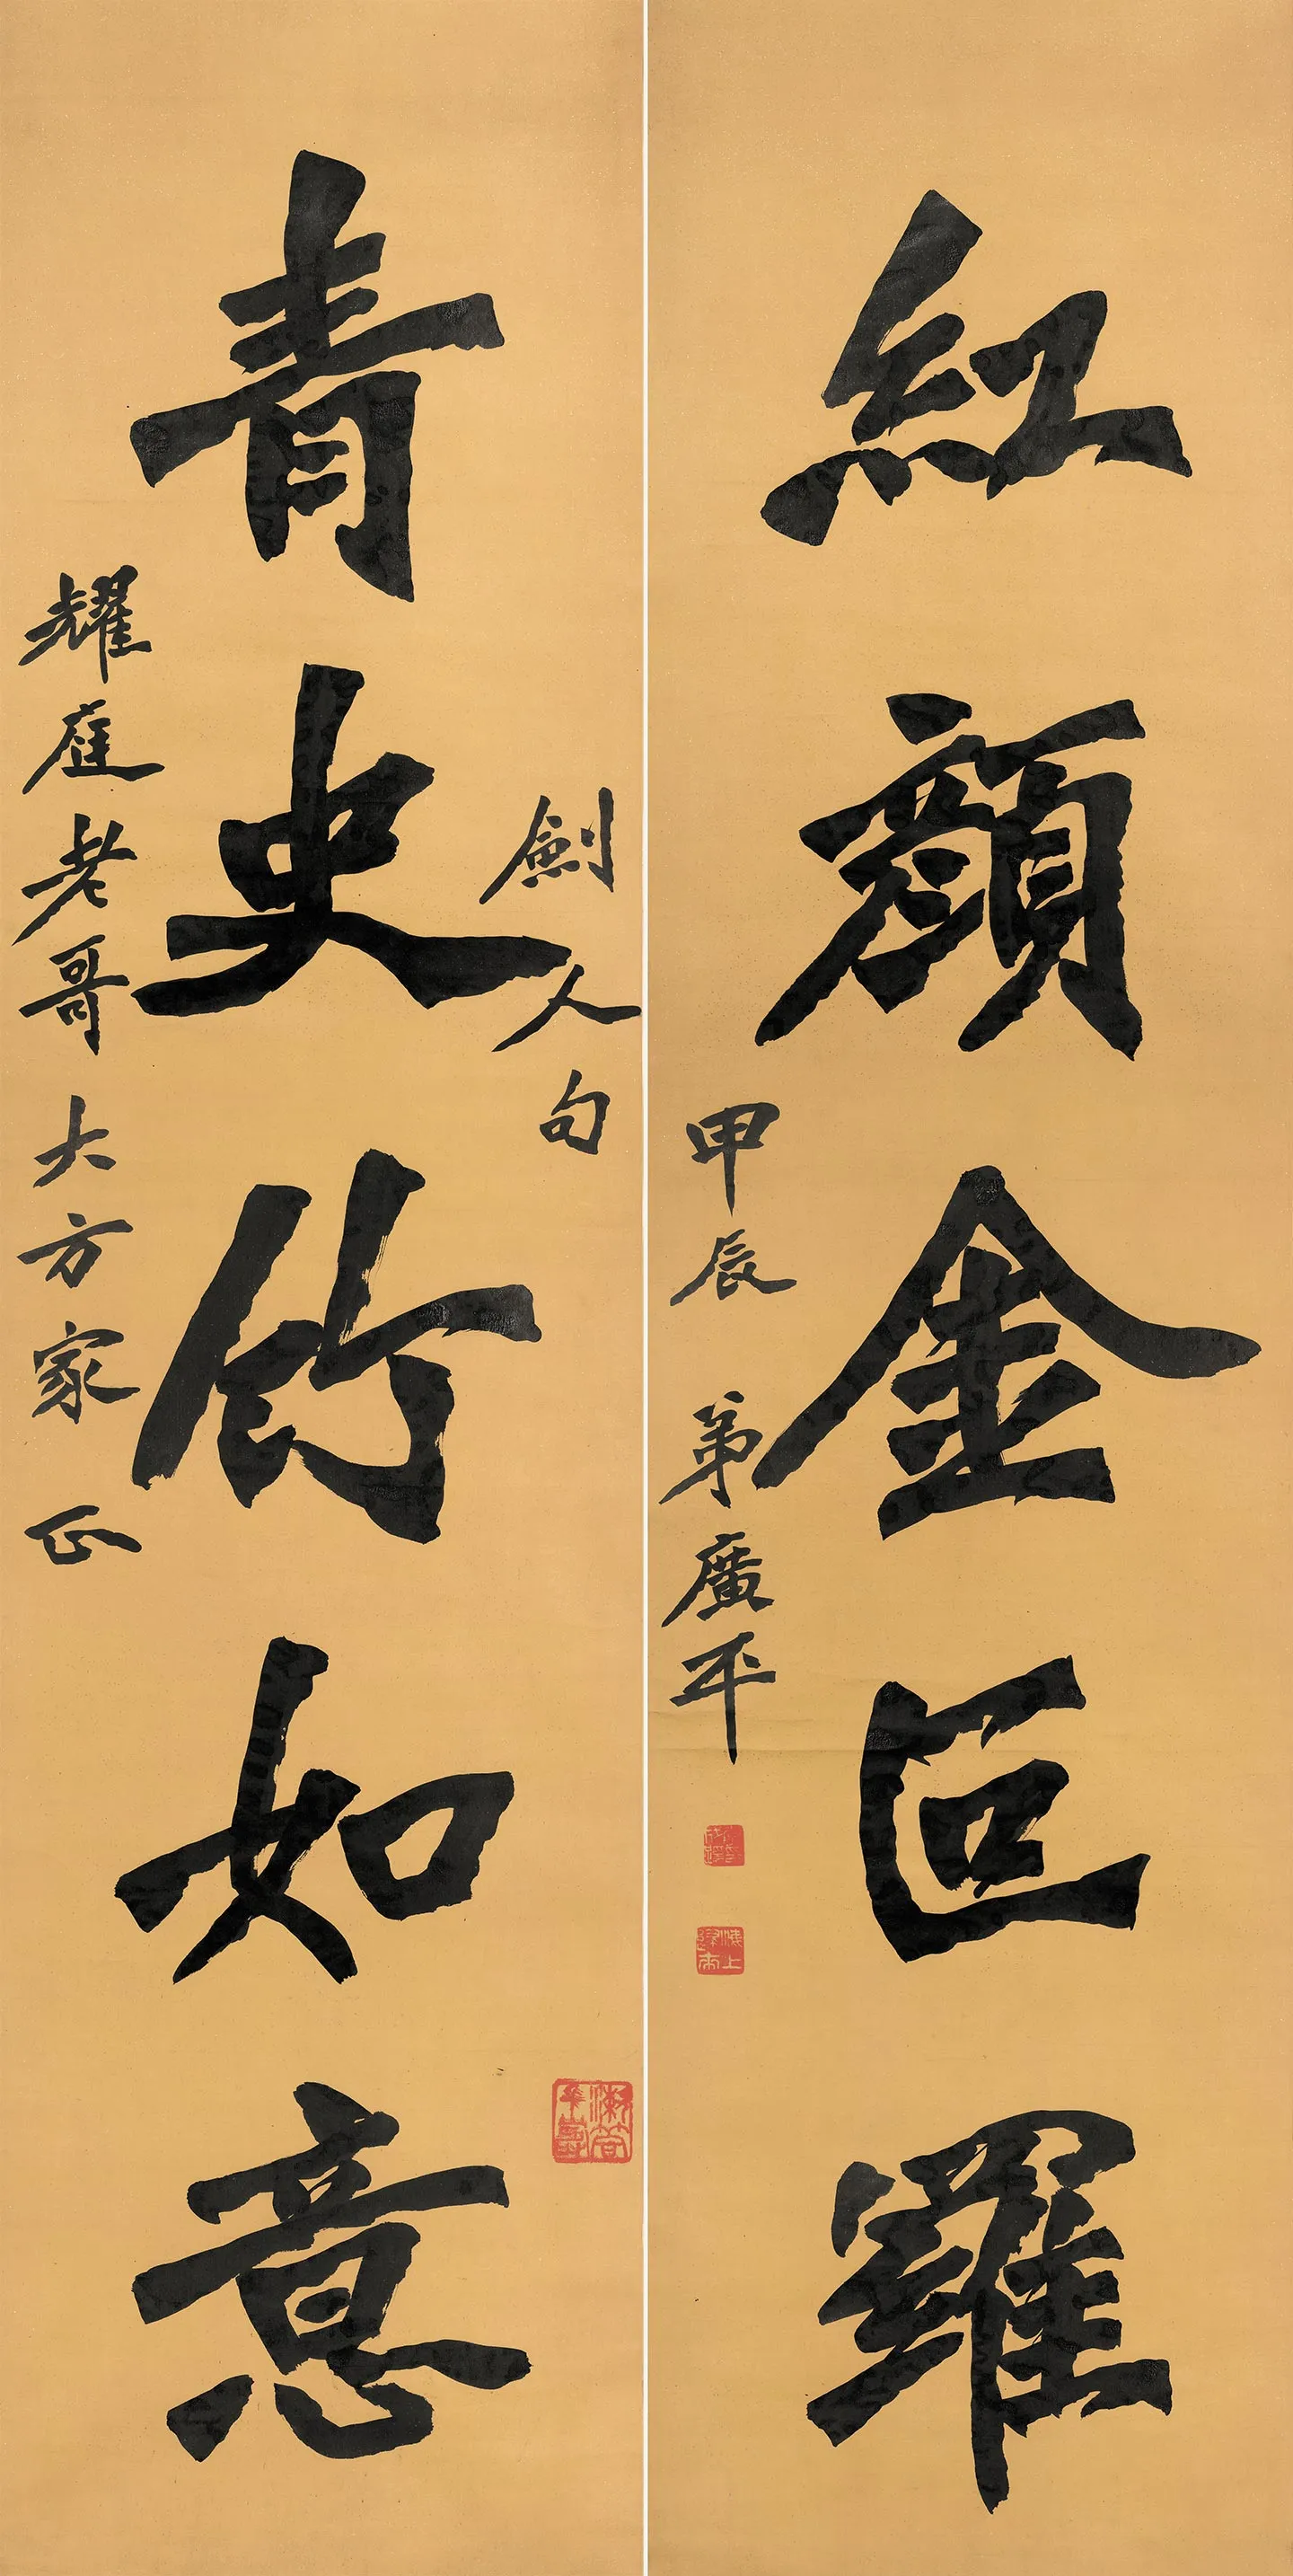 紅顏金叵羅
甲辰 弟廣平
劍人句
青史竹如意
耀庭老哥大方家 正